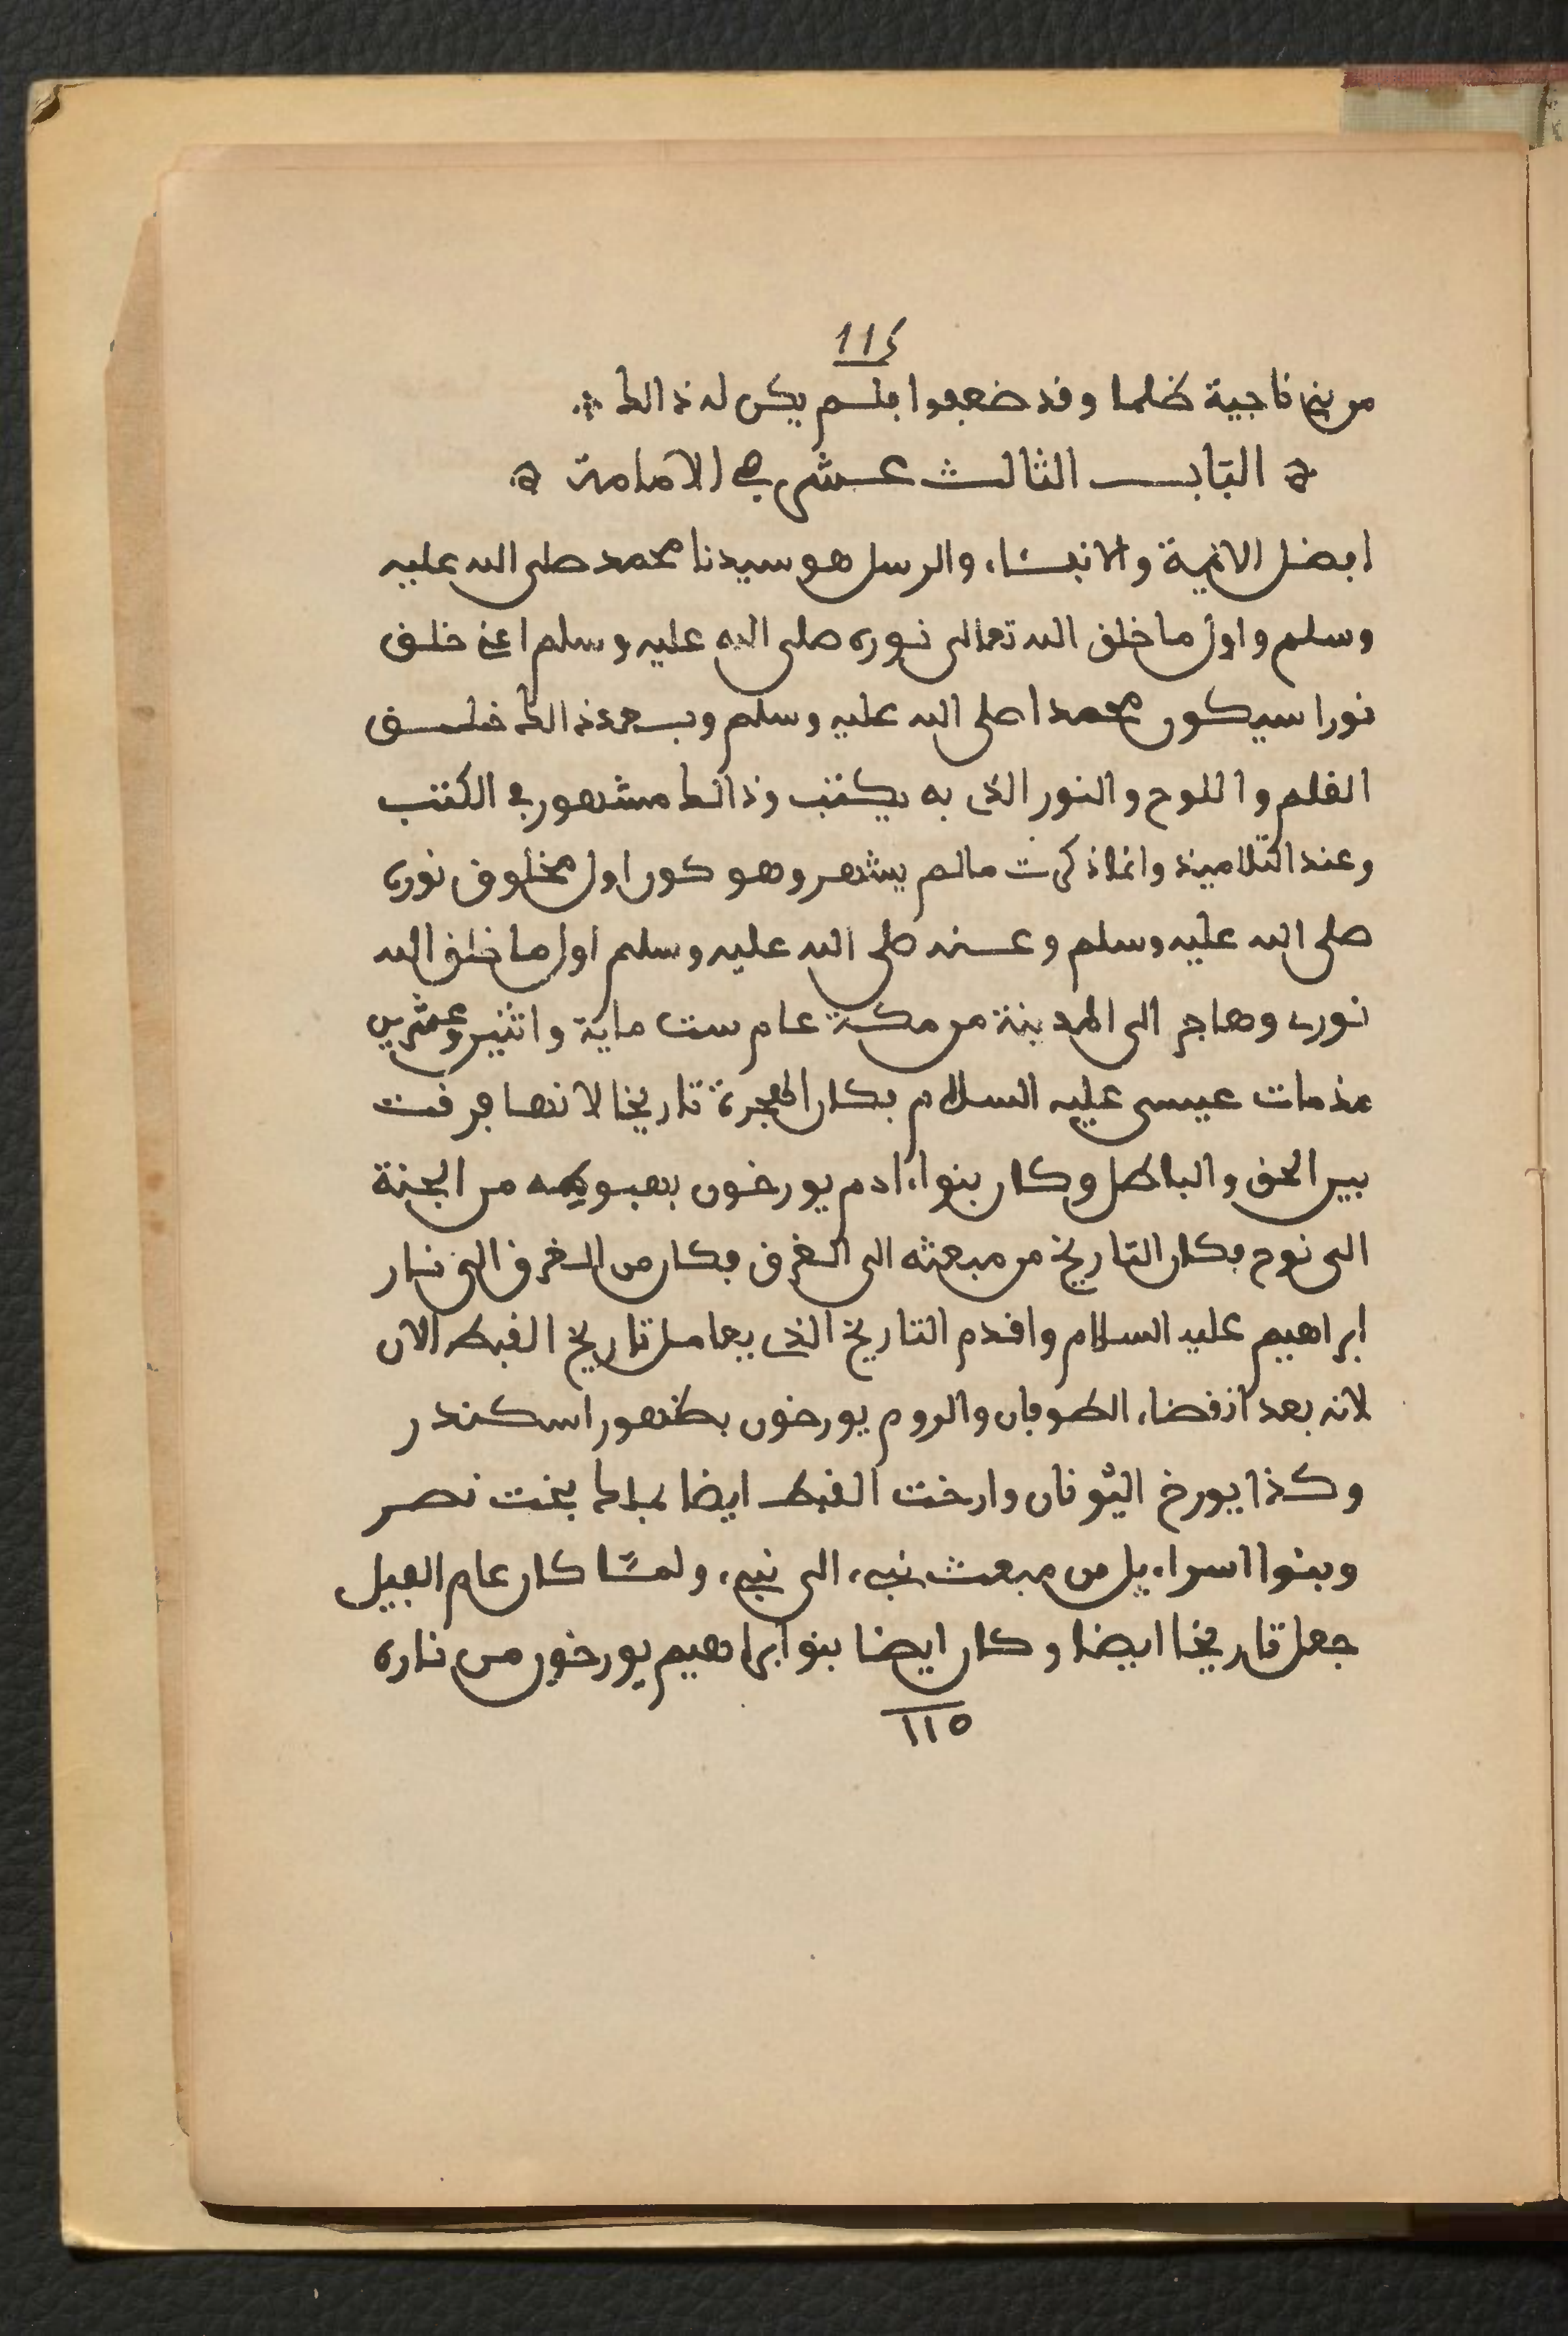 114
من بني ناجية ظلما وقد ضعفوا فلم يكن له ذالك
الباب الثالث عشر في الامامة
افضل الايمة والانبياء والرسل هو سيدنا محمد صلى الله عليه
وسلم واول ما خلق الله تعالى نوره صلى الله عليه وسلم اعني خلق
نورا سيكون محمدا صلى الله عليه وسلم وبعد ذالك خلق
القلم واللوح والنور الذي به يكتب وذالك مشهور في الكتب
وعند التلاميذ وانما ذكرت ما لم يشهر وهو كون اول مخلوق نوره
صلى الله عليه وسلم وعنه صلى الله عليه وسلم اول ما خلق الله
نوري وهاجر الى المدينة من مكة عام ست ماية واثنين وعشرين
مذ مات عيسى عليه السلام فكان الهجرة تاريخا لانها فرقت
بين الحق والباطل وكان بنوا ءادم يورخون بهبوطه من الجنة
الى نوح فكان التاريخ من مبعثه الى الغرق فكان من الغرق الى نار
ابراهيم عليه السلام واقدم التاريخ الذي يعامل تاريخ القبط الان
لانه بعد انقضاء الطوفان والروم يورخون بظهور اسكندر
وكذا يورخ اليونان وارخت القبط ايضا بملك بخت نصر
وبنوا اسراءيل من مبعث نبيء الى نبيء ولما كان عام الفيل
جعل تاريخا ايضا وكان ايضا بنو ابراهيم يورخون من ناره
115